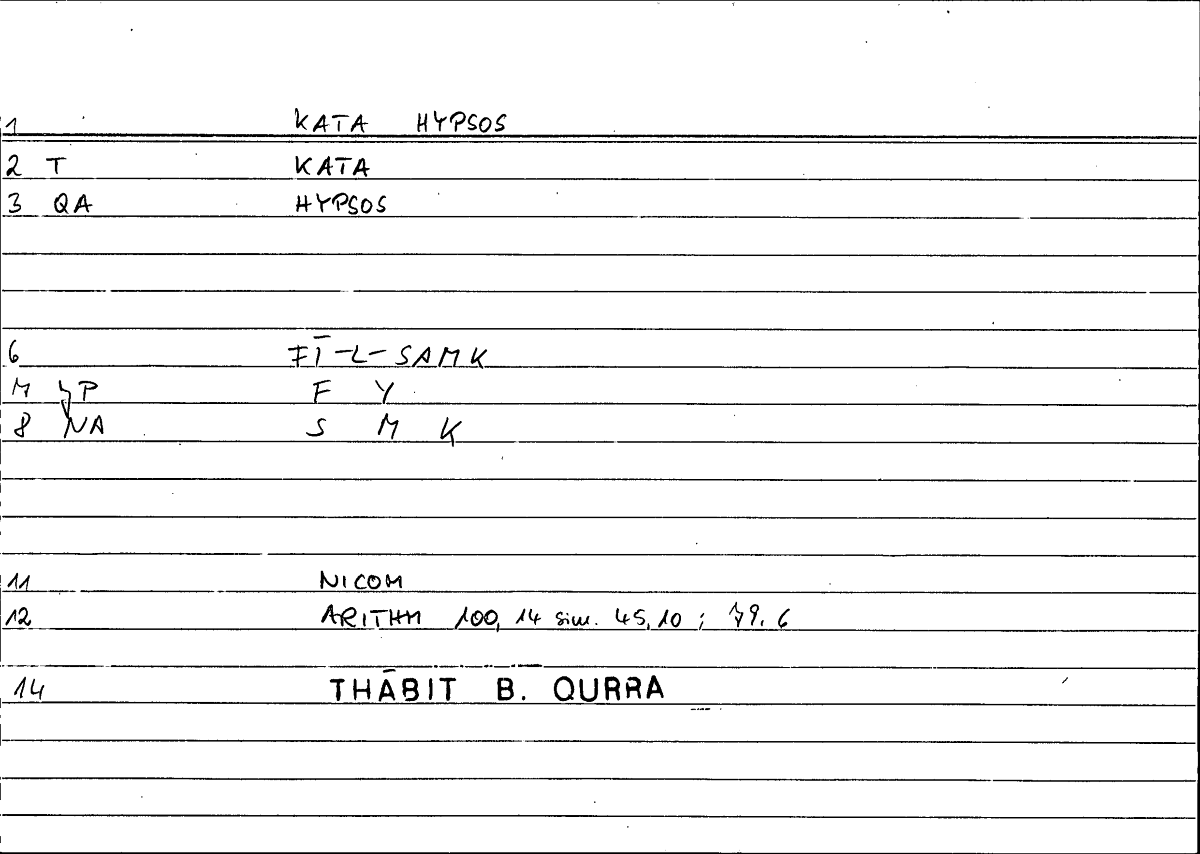 1 KATA HYPSOS
2 T KATA
3 QA HYPSOS
6 FĪ-L-SAMK
M P F Y
8 NA S M K
11 NICOM
12 ARITHM 100, 14 sim. 45, 10 ; 79, 6
14 THĀBIT B. QURRA